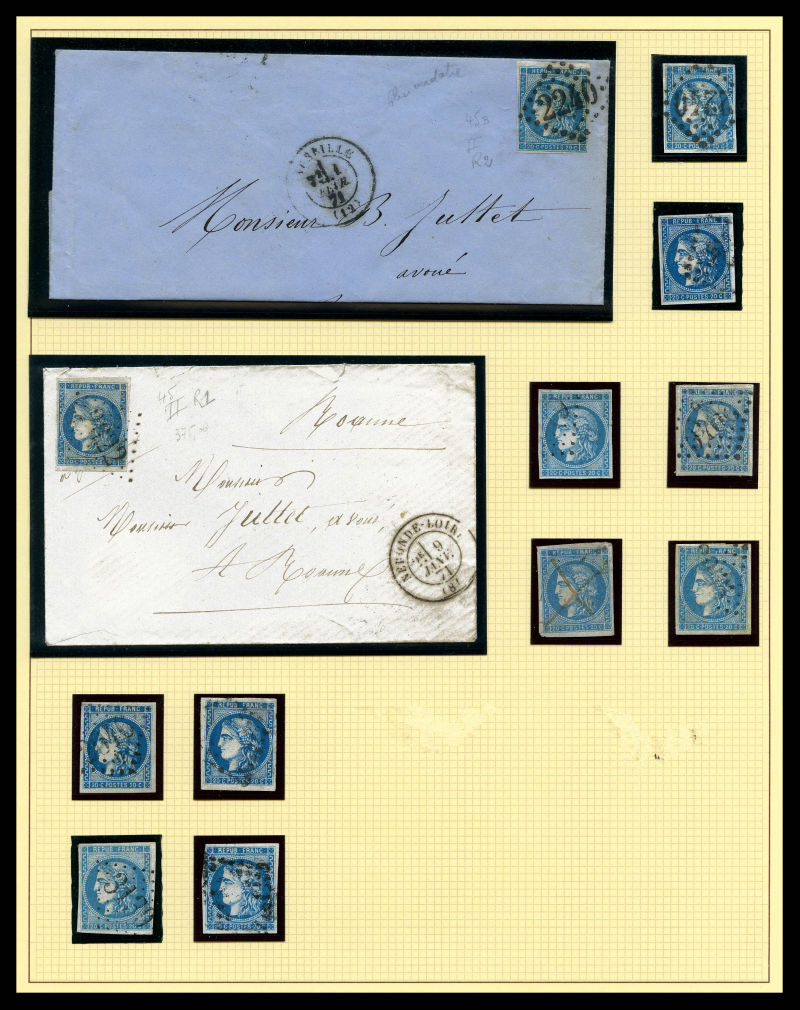 REPUB FRANC
2240
20 C POSTES 20 C
45B
II
R2
MARSEILLE
1
FEVR
71
(12)
Monsieur B. Juttet
avoué
REPUB FRANC
REPUB FRANC
20 C POSTES 20 C
REPUB FRANC
45
II R1
375
Roanne
Monsieur
Monsieur Juttet, avoué
A Roanne
NERONDE-LOIRE
9
JANV
71
REPUB FRANC
20 C POSTES 20 C
REPUB FRANC
20 C POSTES 20 C
REPUB FRANC
20 C POSTES 20 C
REPUB FRANC
20 C POSTES 20 C
REPUB FRANC
20 C POSTES 20 C
REPUB FRANC
20 C POSTES 20 C
REPUB FRANC
20 C POSTES 20 C
REPUB FRANC
20 C POSTES 20 C